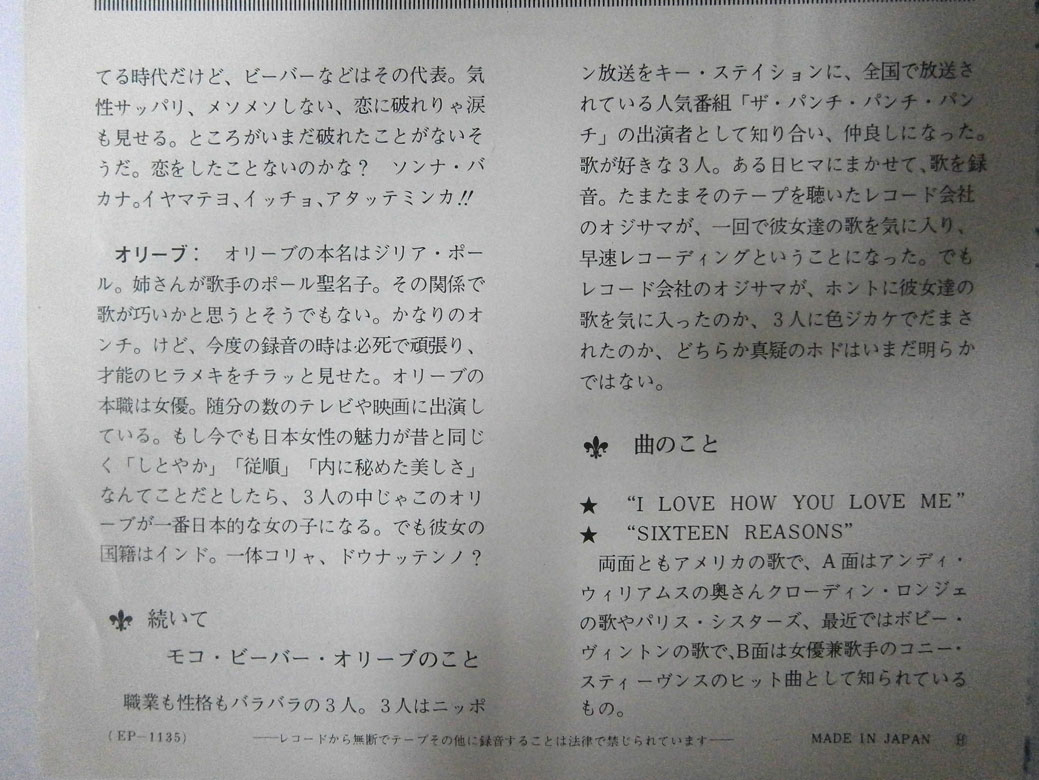 てる時代だけど、ビーバーなどはその代表。気
性サッパリ、メソメソしない、恋に破れりゃ涙
も見せる。ところがいまだ破れたことがないそ
うだ。恋をしたことないのかな？　ソンナ・バ
カナ。イヤマテヨ、イッチョ、アタッテミンカ!!
オリーブ：　オリーブの本名はジリア・ポー
ル。姉さんが歌手のポール聖名子。その関係で
歌が巧いかと思うとそうでもない。かなりのオ
ンチ。けど、今度の録音の時は必死で頑張り、
才能のヒラメキをチラッと見せた。オリーブの
本職は女優。随分の数のテレビや映画に出演し
ている。もし今でも日本女性の魅力が昔と同じ
く「しとやか」「従順」「内に秘めた美しさ」
なんてことだとしたら、３人の中じゃこのオリ
ーブが一番日本的な女の子になる。でも彼女の
国籍はインド。一体コリャ、ドウナッテンノ？
続いて
モコ・ビーバー・オリーブのこと
職業も性格もバラバラの３人。３人はニッポ
ン放送をキー・ステイションに、全国で放送さ
れている人気番組「ザ・パンチ・パンチ・パン
チ」の出演者として知り合い、仲良しになった。
歌が好きな３人。ある日ヒマにまかせて、歌を録
音。たまたまそのテープを聴いたレコード会社
のオジサマが、一回で彼女達の歌を気に入り、
早速レコーディングということになった。でも
レコード会社のオジサマが、ホントに彼女達の
歌を気に入ったのか、３人に色ジカケでだまさ
れたのか、どちらか真疑のホドはいまだ明らか
ではない。
曲のこと
★　“I LOVE HOW YOU LOVE ME”
★　“SIXTEEN REASONS”
両面ともアメリカの歌で、A面はアンディ・
ウィリアムスの奥さんクローディン・ロンジェ
の歌やパリス・シスターズ、最近ではボビー・
ヴィントンの歌で、B面は女優兼歌手のコニー・
スティーヴンスのヒット曲として知られている
もの。
(EP-1135)　――レコードから無断でテープその他に録音することは法律で禁じられています――　MADE IN JAPAN